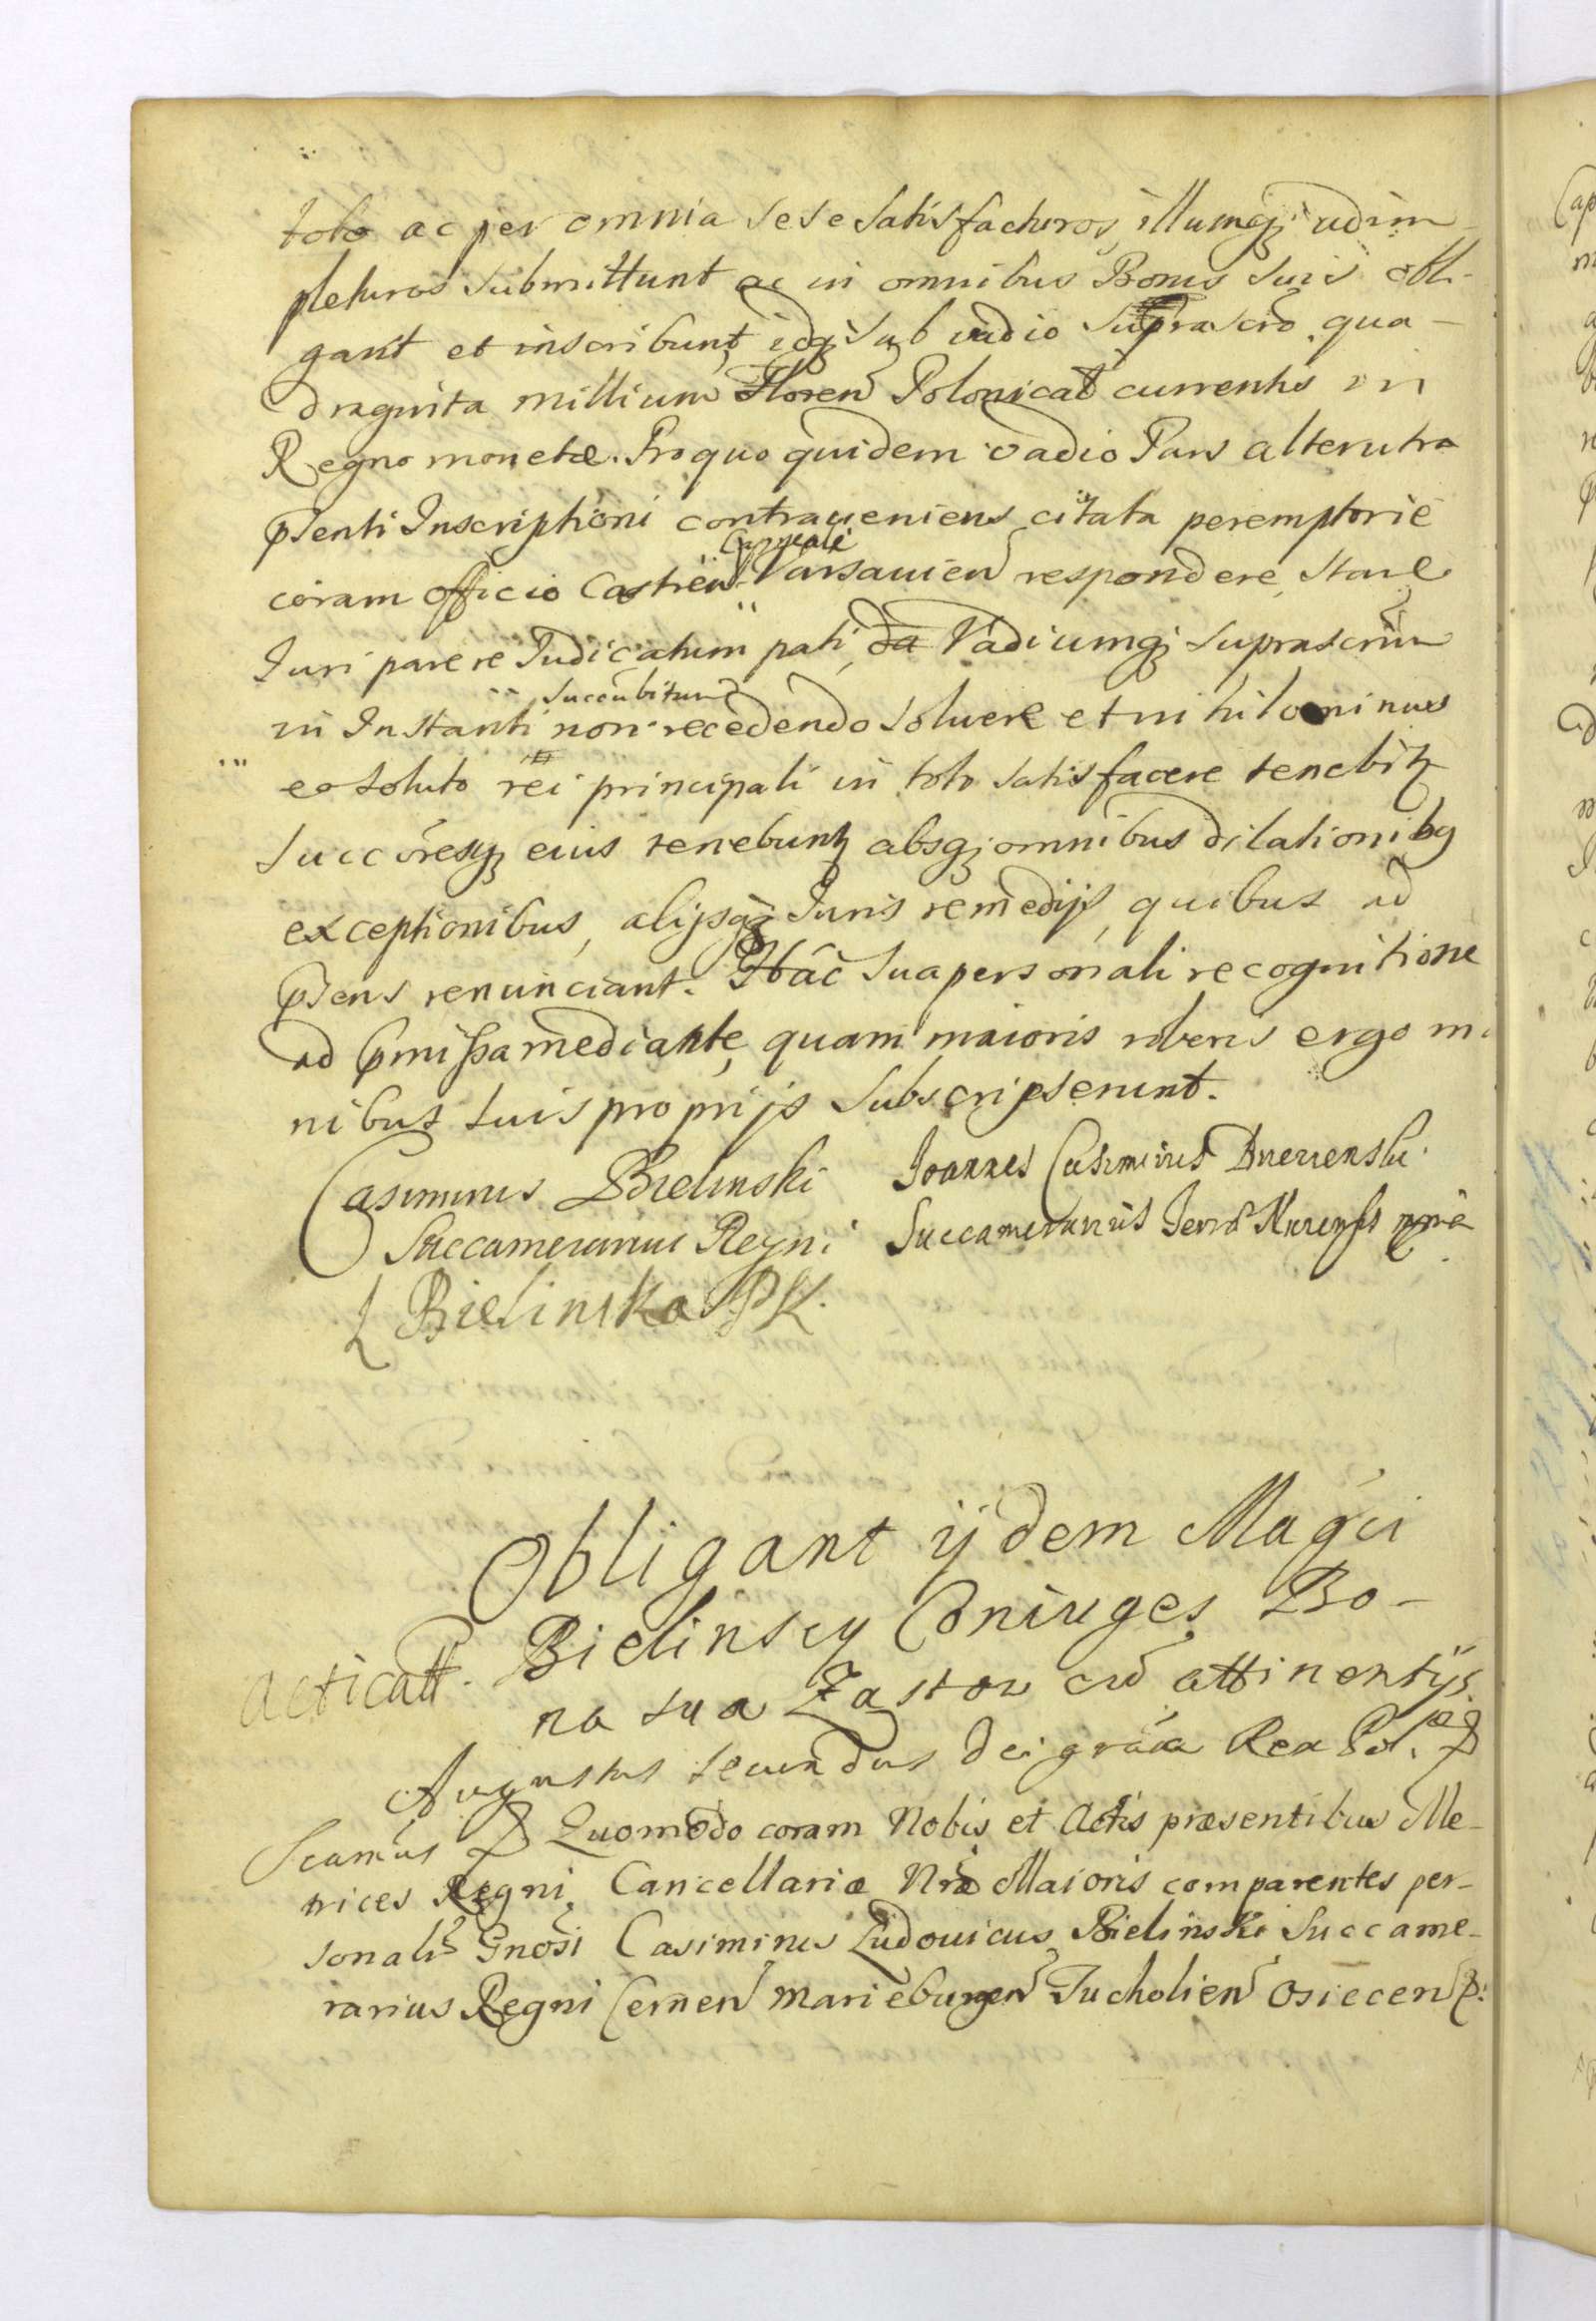 toto ac per omnia sese satisfacturos, illumqȝ adim-
pleturos submittunt ac in omnibus Bonis suis obli-
gant et inscribunt, idqȝ sub vadio suprascrō qua-
draginta millium Floren Polonical currentis in
Regno monetæ. Pro quo quidem vadio Pars alterutra
pñsenti Inscriptioni contraveniens citata peremptorie
coram officio Castren Capneali Varsavien respondere, stare
Juri parere Judicatum pati, da Vadiumqȝ suprascrūm
in Instanti non recedendo succubitur solvere et nihilominus
eo soluto rei principali in toto satisfacere tenebitr
succōresqȝ eius tenebuntr absqȝ omnibus dilationibꝫ
exceptionibus, alijsqȝ Juris remedijs, quibus ad
pñsens renunciant. Hac sua personali recognitione
ad pmissa mediante, quam maioris roboris ergo ma
nibus suis proprijs subscripserunt.
Casimirus Bielinski
Succamerarius Regni
Joannes Casimirus
Succamerarius Terræ Nurensis mpa
L Bielinska PK.
Obligant ijdem Magci
Bielinscy Coniuges Bo-
na sua Zastow cū attinentijs
acticatt.
Augustus secundus Dei grāa Rex Pol. æ &
Scamus & Quomodo coram Nobis et Actis præsentibus Me-
trices Regni, Cancellariæ Nræ Maioris comparentes per-
sonalr Gnosi Casimirus Ludovicus Bielinski Succame-
rarius Regni Cernen Marieburgen Tucholien Osiecen &: